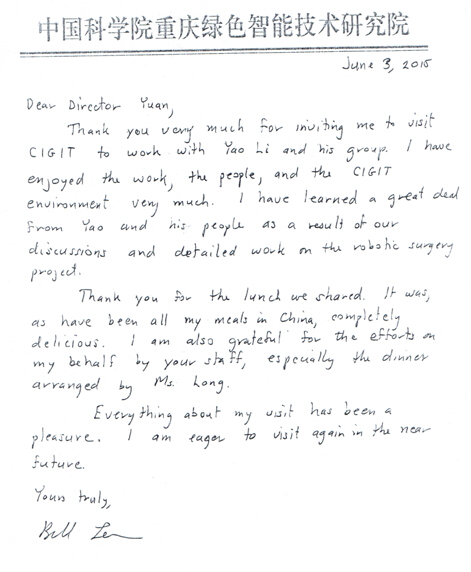 中国科学院重庆绿色智能技术研究院
June 3, 2015
Dear Director Yuan,
Thank you very much for inviting me to visit
CIGIT to work with Yao Li and his group. I have
enjoyed the work, the people, and the CIGIT
environment very much. I have learned a great deal
from Yao and his people as a result of our
discussions and detailed work on the robotic surgery
project.
Thank you for the lunch we shared. It was,
as have been all my meals in China, completely
delicious. I am also grateful for the efforts on
my behalf by your staff, especially the dinner
arranged by Ms. Long.
Everything about my visit has been a
pleasure. I am eager to visit again in the near
future.
Yours truly,
Bill